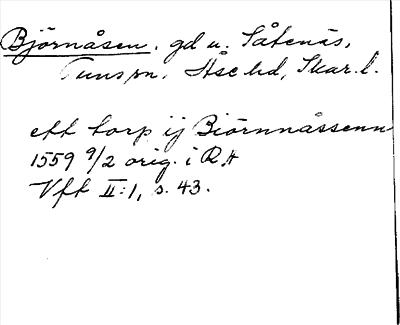 Björnåsen, gd u. Såtenäs,
Tuns sn, Åse hd, Skar. l.
ett torp ij Biörnnåssenn
1559 9/2 orig. i RA
Vft II:1, s. 43.